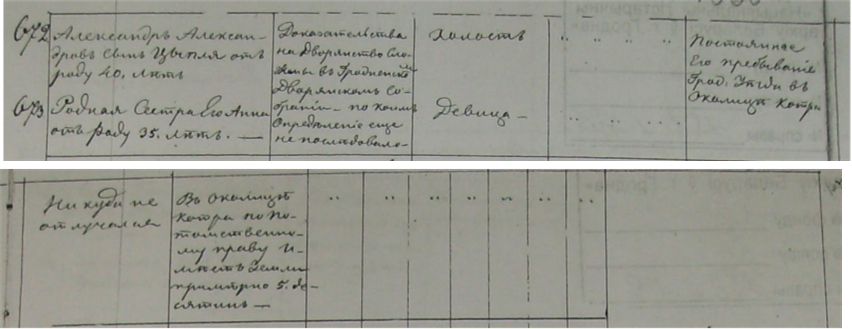 672
Александръ Алексан-
дровъ сынъ Цыпля отъ
роду 40. лѣтъ
673
Родная Сестра Его Анна
отъ роду 35. лѣтъ. —
Доказательства
на Дворянство Сло-
жены въ Гродненскомъ
Дворянскомъ Со-
браніи — по коимъ
Опредѣленіе еще
не послѣдовало —
Холостъ
Девица —
Постоянное
Его пребываніе
Грод. Уѣзда въ
Околицѣ Котра
Ни куда не
отлучался
Въ Околицѣ
Котра по По-
томственно-
му праву и-
мѣетъ Земли
примѣрно 5. де-
сятинъ —